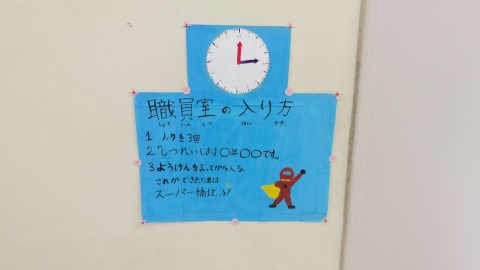 職員室の入り方
しょく いん しつ はい かた
1 ノックを3回
2「しつれいします〇年〇〇です。
3 ようけんを言ってから入る
これができたらあなたは
スーパー